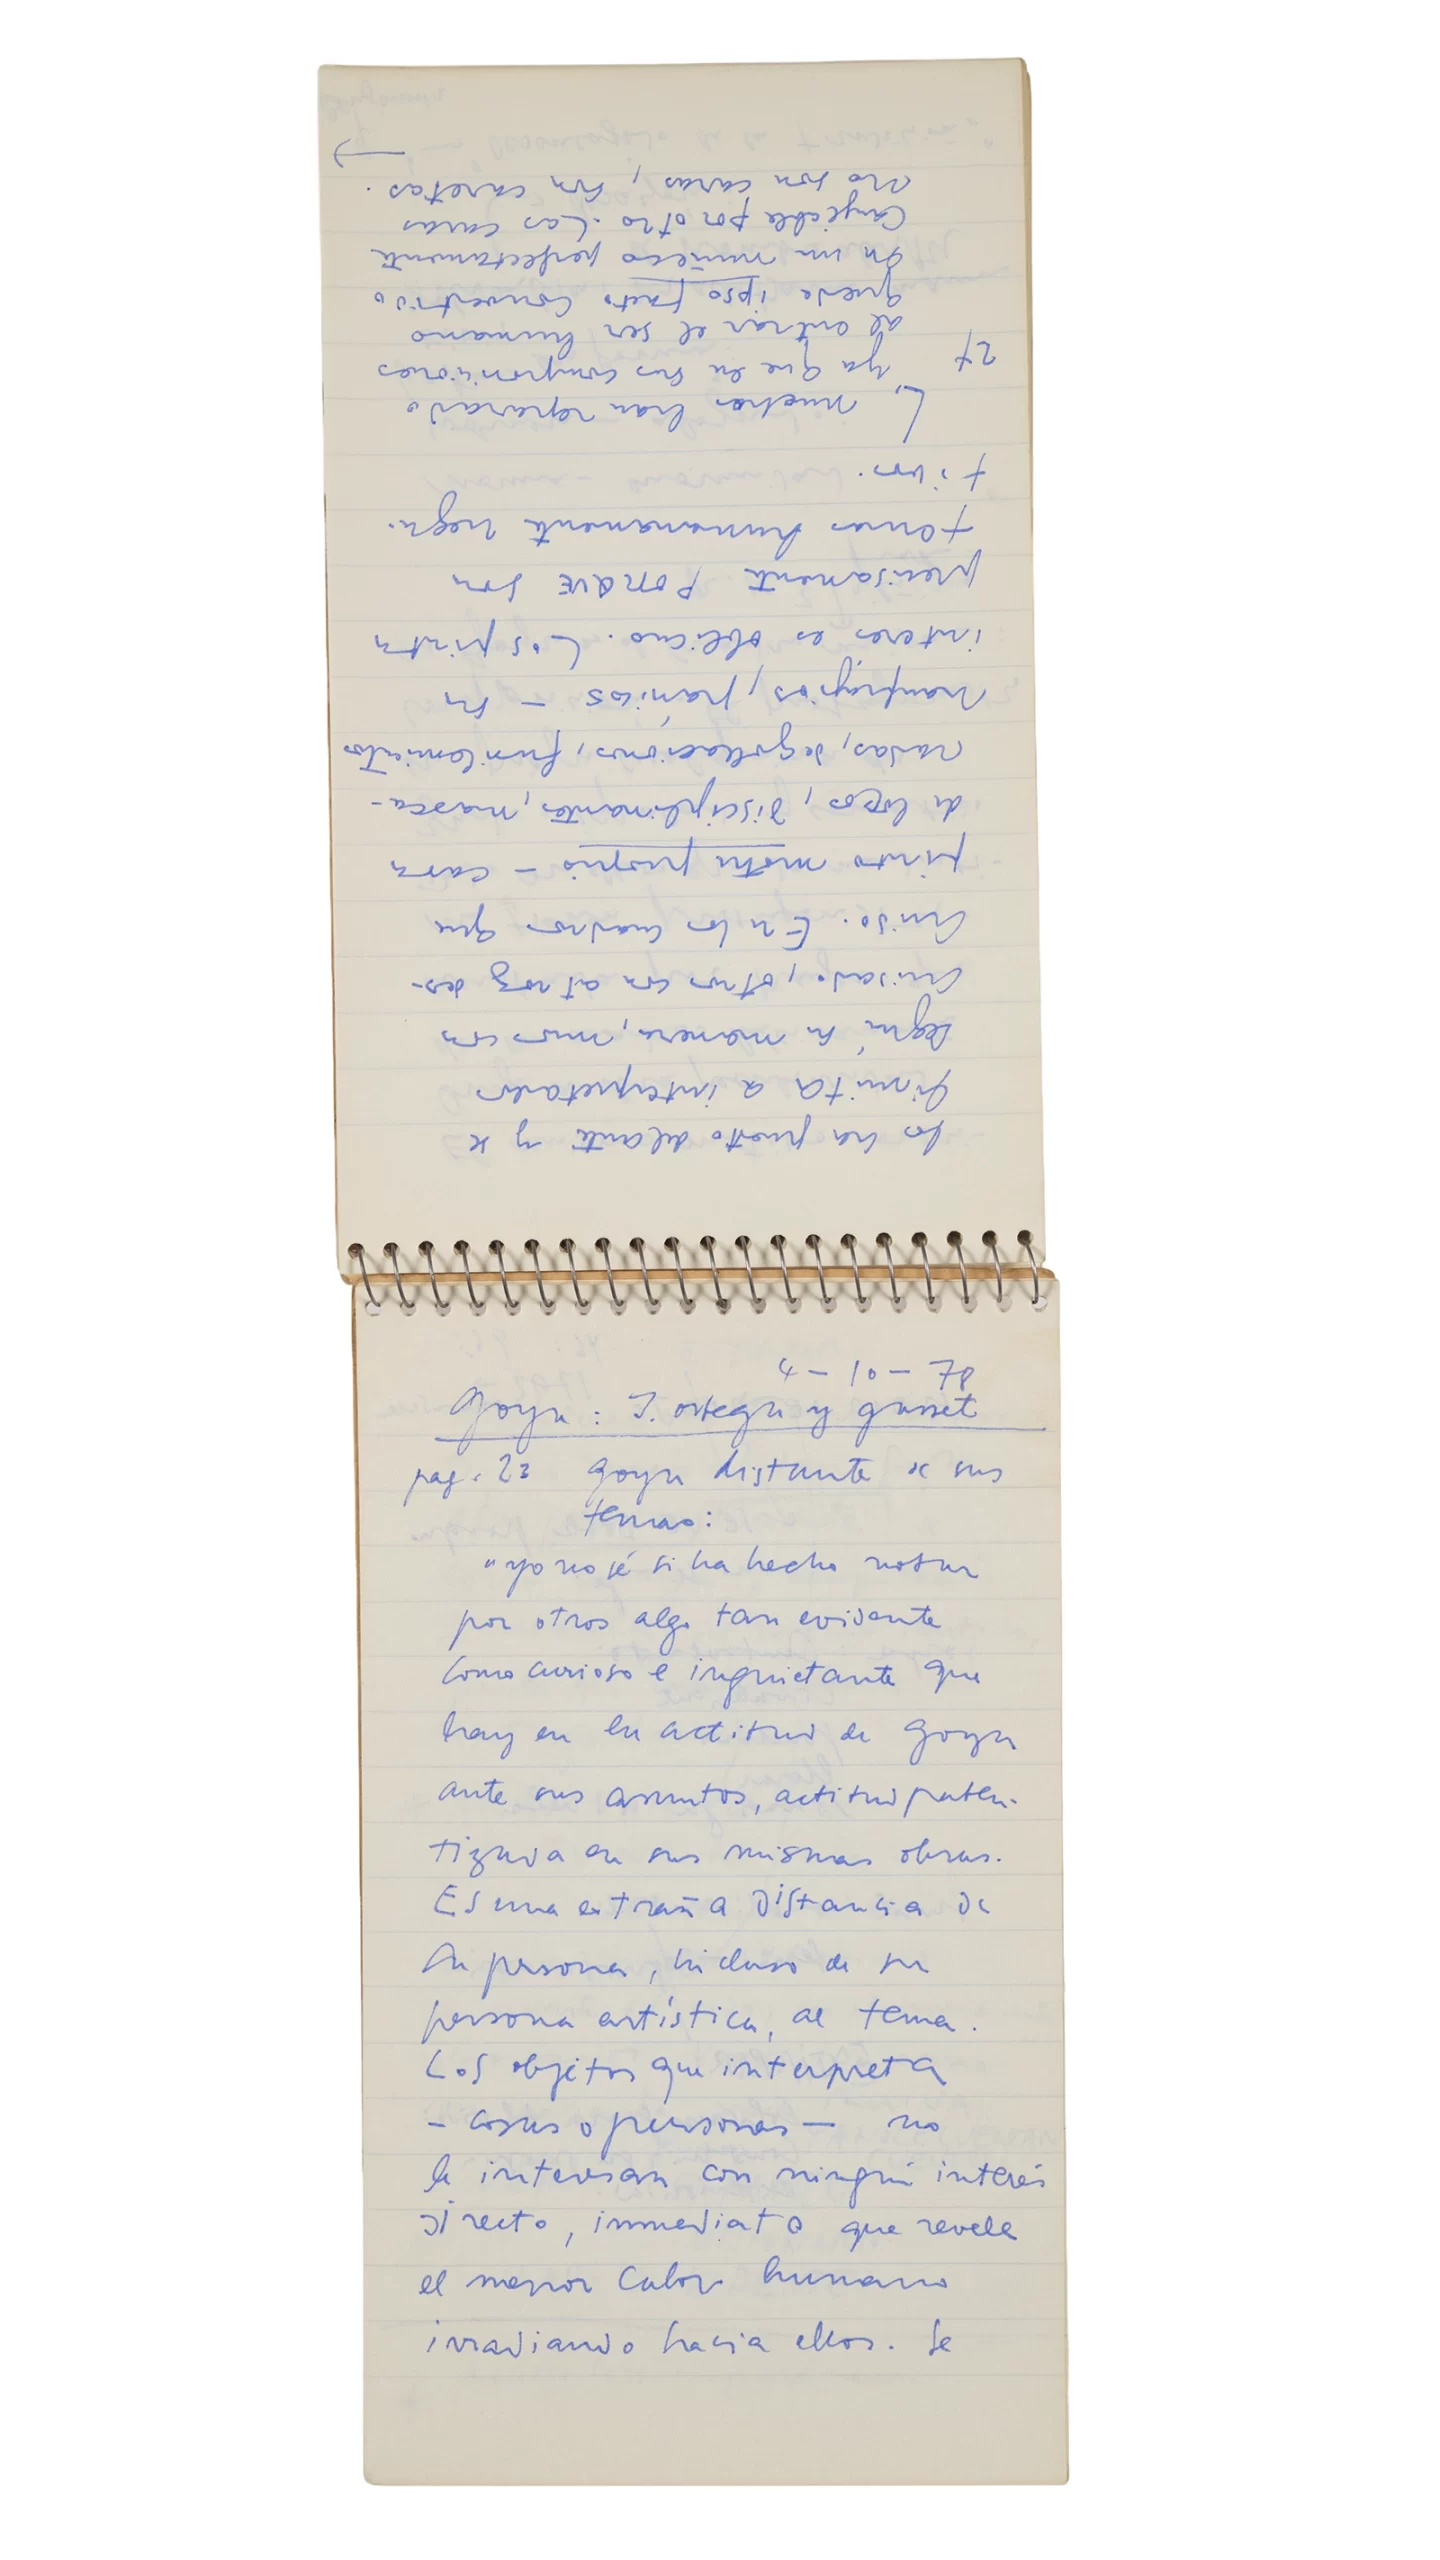 4 – 10 – 78
Goya : J. ortega y gasset
pag. 23 Goya distante de sus
temas:
"yo no sé si ha hecho notar
por otros algo tan evidente
como curioso e inquietante que
hay en la actitud de Goya
ante sus asuntos, actitud paten-
tizada en sus mismas obras.
Es una extraña distancia de
su persona, incluso de su
persona artística, al tema.
Los objetos que interpreta
– cosas o personas – no
le interesan con ningún interés
directo, inmediato que revele
el menor calor humano
irradiando hacia ellos. Se
los ha puesto delante y se
limita a interpretarlos
según su manera, unos con
cuidado, otros con atroz des-
cuido. En los cuadros que
pinto motu propio – casa
de locos, disciplinantes, masca-
radas, degollaciones, fusilamientos
naufragios, pánicos – su
interes es oblicuo. Los pinta
precisamente PORQUE son
temas humanamente nega-
tivos.
L, muchos han reparado
27 ya que en sus composiciones
al entrar el ser humano
quede ipso facto convertido
en un muñeco perfectamente
canjeable por otro. Las caras
no son caras, son caretas.
→